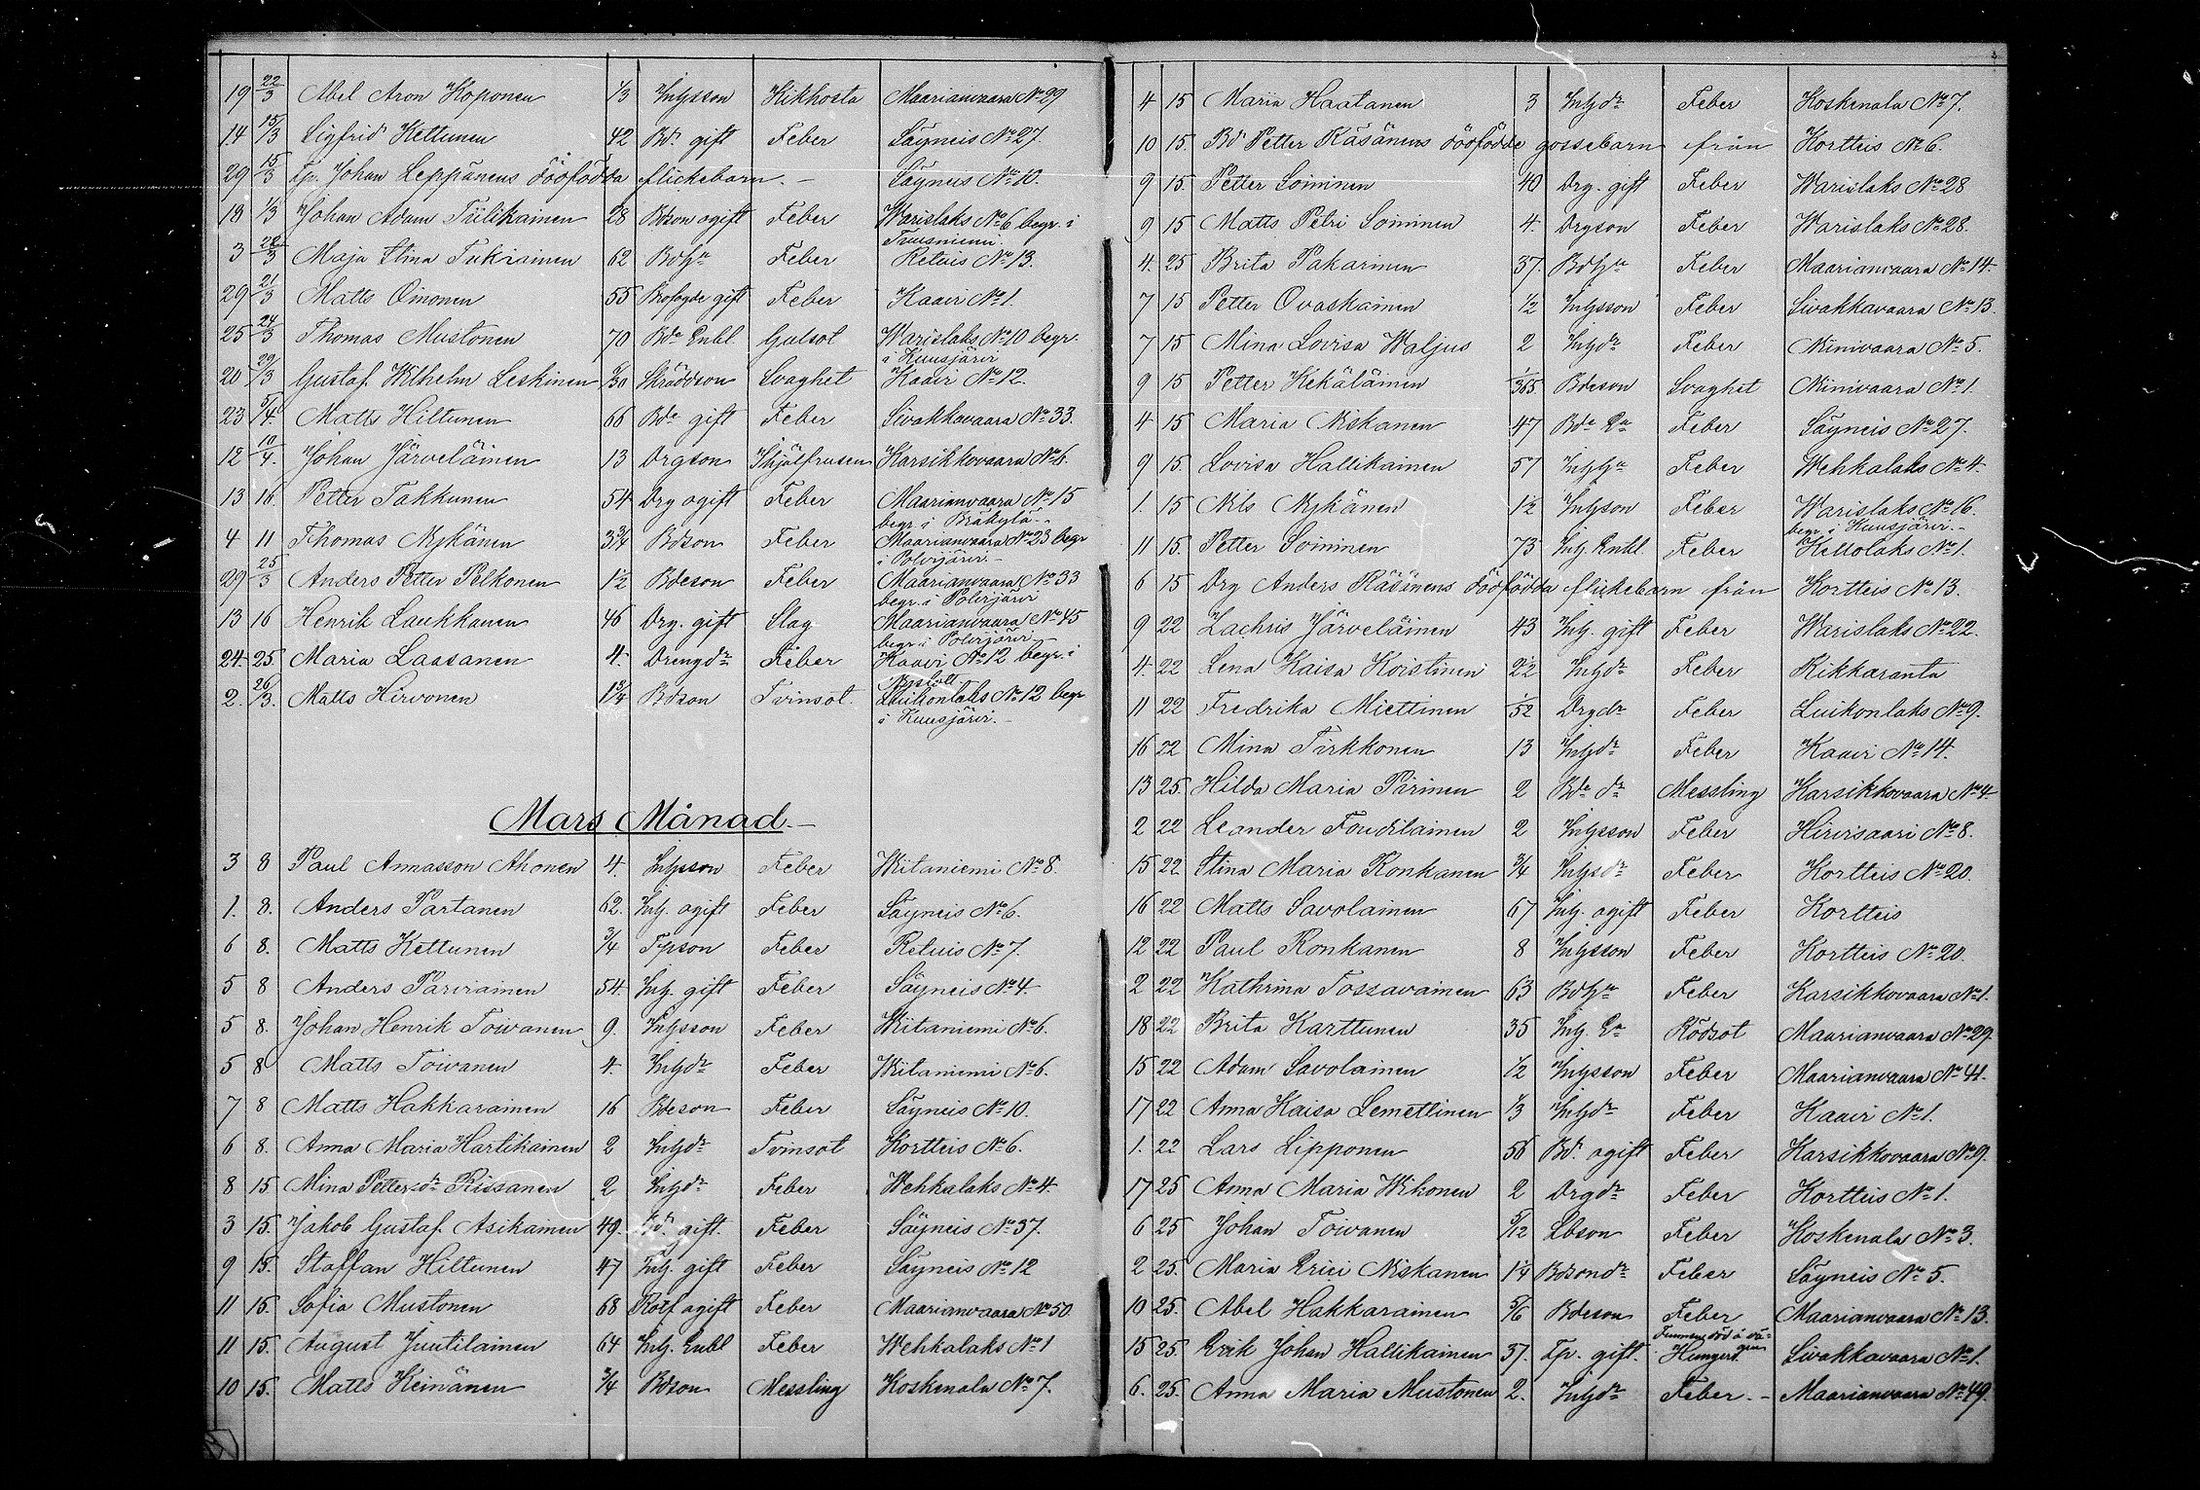 19 22/3 Abel Aron Koponen 1/3 Inhysson Kikhosta Maarianvaara No 29
14 15/3 Sigfrid Kettunen 42 Bd. gift Feber Säyneis No 27.
29 15/3 Tp. Johan Leppänens dödfödda flickebarn. – Säyneis No 10.
18 1/3 Johan Adam Tiilikainen 28 Bdson ogift Feber Warislaks No 6 begr. i
Tuusniemi.
3 28/3 Maja Stina Tukiainen 62 BdHu Feber Retuis No 13.
29 21/3 Matts Oinonen 55 Bofogde gift Feber Kaavi No 1.
25 24/3 Thomas Mustonen 70 Bde Enkl Gulsot Warislaks No 10 begr.
i Kuusjärvi
20 29/3 Gustaf Wilhelm Leskinen Skräddson Svaghet Kaavi No 12.
23 5/4 Matts Hiltunen 66 Bde gift Feber Sivakkavaara No 33.
12 10/4. Johan Järveläinen 13 Drgson Ihjälfrusen Karsikkovaara No 6.
13 16 Petter Takkunen 54 Drg ogift Feber Maarianvaara No 15
begr. i Bräkylä.
4 11 Thomas Nykänen 3 3/4 Bdson Feber Maarianvaara No 23 begr
i Polvijärvi. –
29 25/3 Anders Petter Pelkonen 1 1/2 Bdeson Feber Maarianvaara No 33
begr. i Polvijärvi
13 16 Henrik Laukkanen 46 Drg. gift Slag Maarianvaara No 45
begr i Polvijärvi –
24 25 Maria Laasanen 4. Drengdr Feber Kaavi No 12 begr. i
Nyslott
2. 26/3. Matts Hirvonen 1 3/4 Bdson Tvinsot. Luikonlaks No 12 begr
i Kuusjärvi. –
Mars Månad. –
3 8 Paul Annasson Ahonen 4. Inhysson Feber Wiitaniemi No 8.
1. 8. Anders Partanen 62. Inh. ogift Feber Säyneis No 6.
6 8. Matts Kettunen 3/4 Tpson Feber Retuis No 7.
5 8 Anders Parviainen 54. Inh. gift Feber Säyneis No 4.
5 8. Johan Henrik Toivanen 9. Inhysson Feber Wiitaniemi No 6.
5 8 Matts Toivanen 4. Inhdr Feber Wiitaniemi No 6.
7 8 Matts Hakkarainen 16 Bdeson Feber Säyneis No 10.
6 8. Anna Maria Hartikainen 2 Inhdr Tvinsot Kortteis No 6.
8 15 Mina Petter dr Rissanen 2 Inhdr Feber Wehkalaks No 4.
3 15. Jakob Gustaf Asikainen 49. Bd. gift. Feber Säyneis No 37.
9 15. Staffan Hiltunen 47 Inh. gift Feber Säyneis No 12
11 15. Sofia Mustonen 68 Rotf ogift Feber Maarianvaara No 50.
11 15. August Juutilainen 64 Inh. Enkl Feber Wehkalaks No 1
10 15. Matts Keinänen 3/4 Bdson Messling Koskenala No 7.
4 15 Maria Haatanen 3 Inhdr Feber Koskenala No 7.
10 15. Bd Petter Räsänens dödfödde gossebarn från Kortteis No 6.
9 15. Petter Soininen 40 Drg. gift Feber Warislaks No 28
9 15 Matts Petri Soininen 4. Drgson Feber Warislaks No 28.
4. 25 Brita Pakarinen 37. BdHu Feber Maarianvaara No 14.
7 15 Petter Ovaskainen 1/2 Inhysson Feber Sivakkavaara No 13.
7 15 Mina Lovisa Waljus 2 Inhdr Feber Niinivaara No 5.
9 15 Petter Kekäläinen 1/365 Bdeson Svaghet Niinivaara No 1.
4 15 Maria Niskanen 47 Bde Ea Feber Säyneis No 27.
9 15. Lovisa Hallikainen 57 InhHu Feber Wehkalaks No 4.
1. 15 Nils Nykänen 1/2 Inhyson Feber Warislaks No 16.
begr. i Kuusjärvi. –
11 15. Petter Soininen 73 Inh. Enkl. Feber Keltolaks No 1.
6 15 Drg Anders Räsänens dödfödda flickebarn från Kortteis No 13.
9 22 Zachris Järveläinen 43 Inh. gift Feber Warislaks No 22.
4. 22 Lena Kaisa Koistinen 2 1/2 Inhdr Feber Rikkaranta
11 22 Fredrika Miettinen 1/52 Drgdr Feber Luikonlaks No 9.
16 22 Mina Tirkkonen 13 Inhdr Feber Kaavi No 14.
13 25. Hilda Maria Pärinen 2 Bde dr Messling Karsikkovaara No 4.
2 22 Leander Toudilainen 2 Inhysson Feber Hirvisaari No 8.
15 22 Stina Maria Ronkanen 3/4 Inhysdr Feber Kortteis No 20.
16 22 Matts Savolainen 67 Inh. ogift Feber Kortteis
12 22 Paul Ronkanen 8 Inhysson Feber Kortteis No 20.
2 22 Kathrina Tossavainen 63 BdHu Feber Karsikkovaara No 1.
18 22 Brita Karttunen 35 Inh. Ea Rödsot Maarianvaara No 29.
15 22 Adam Savolainen 1/2 Inhysson Feber Maarianvaara No 41.
17 22 Anna Kaisa Lemettinen 1/3 Inhdr Feber Kaavi No 1.
1. 22 Lars Lipponen 56 Bd. ogift Feber Karsikkovaara No 9.
17 25 Anna Maria Wikonen 2 Drgdr Feber Kortteis No 1.
6 25 Johan Toivanen 5/12 Lbson Feber Koskenala No 3.
2 25. Maria Erici Niskanen 1/4 Bdsondr Feber Säyneis No 5.
10 25. Abel Hakkarainen 5/6 Bdeson Feber Maarianvaara No 13.
Funnen död å vägen
15 25. Erik Johan Hallikainen 37. Tp. gift. Hunger. Sivakkavaara No 1.
6. 25. Anna Maria Mustonen 2. Inhdr Feber. – Maarianvaara No 49.